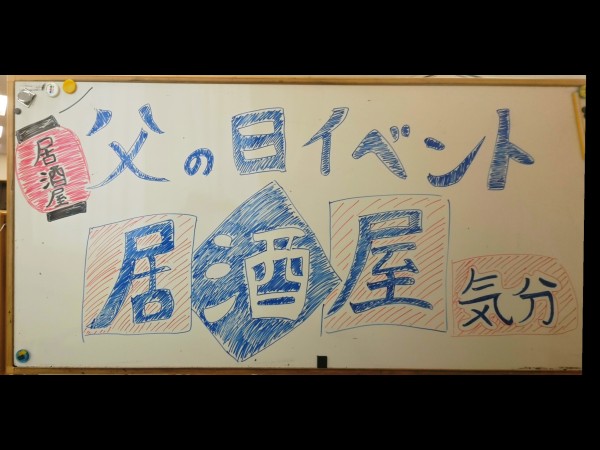 父の日イベント
居酒屋
居酒屋気分